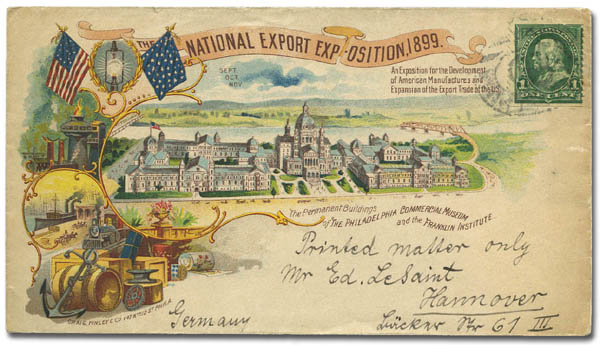 THE NATIONAL EXPORT EXP-OSITION, 1899.
SEPT.
OCT.
NOV.
An Exposition for the Development
of American Manufactures and
Expansion of the Export Trade of the U.S.
1 1
The Permanent Buildings
of THE PHILADELPHIA COMMERCIAL MUSEUM
and the FRANKLIN INSTITUTE
Printed matter only
Mr Ed. LeSaint
Hannover
Germany
Läcker Str 61 III
CRAIG, FINLEY & CO